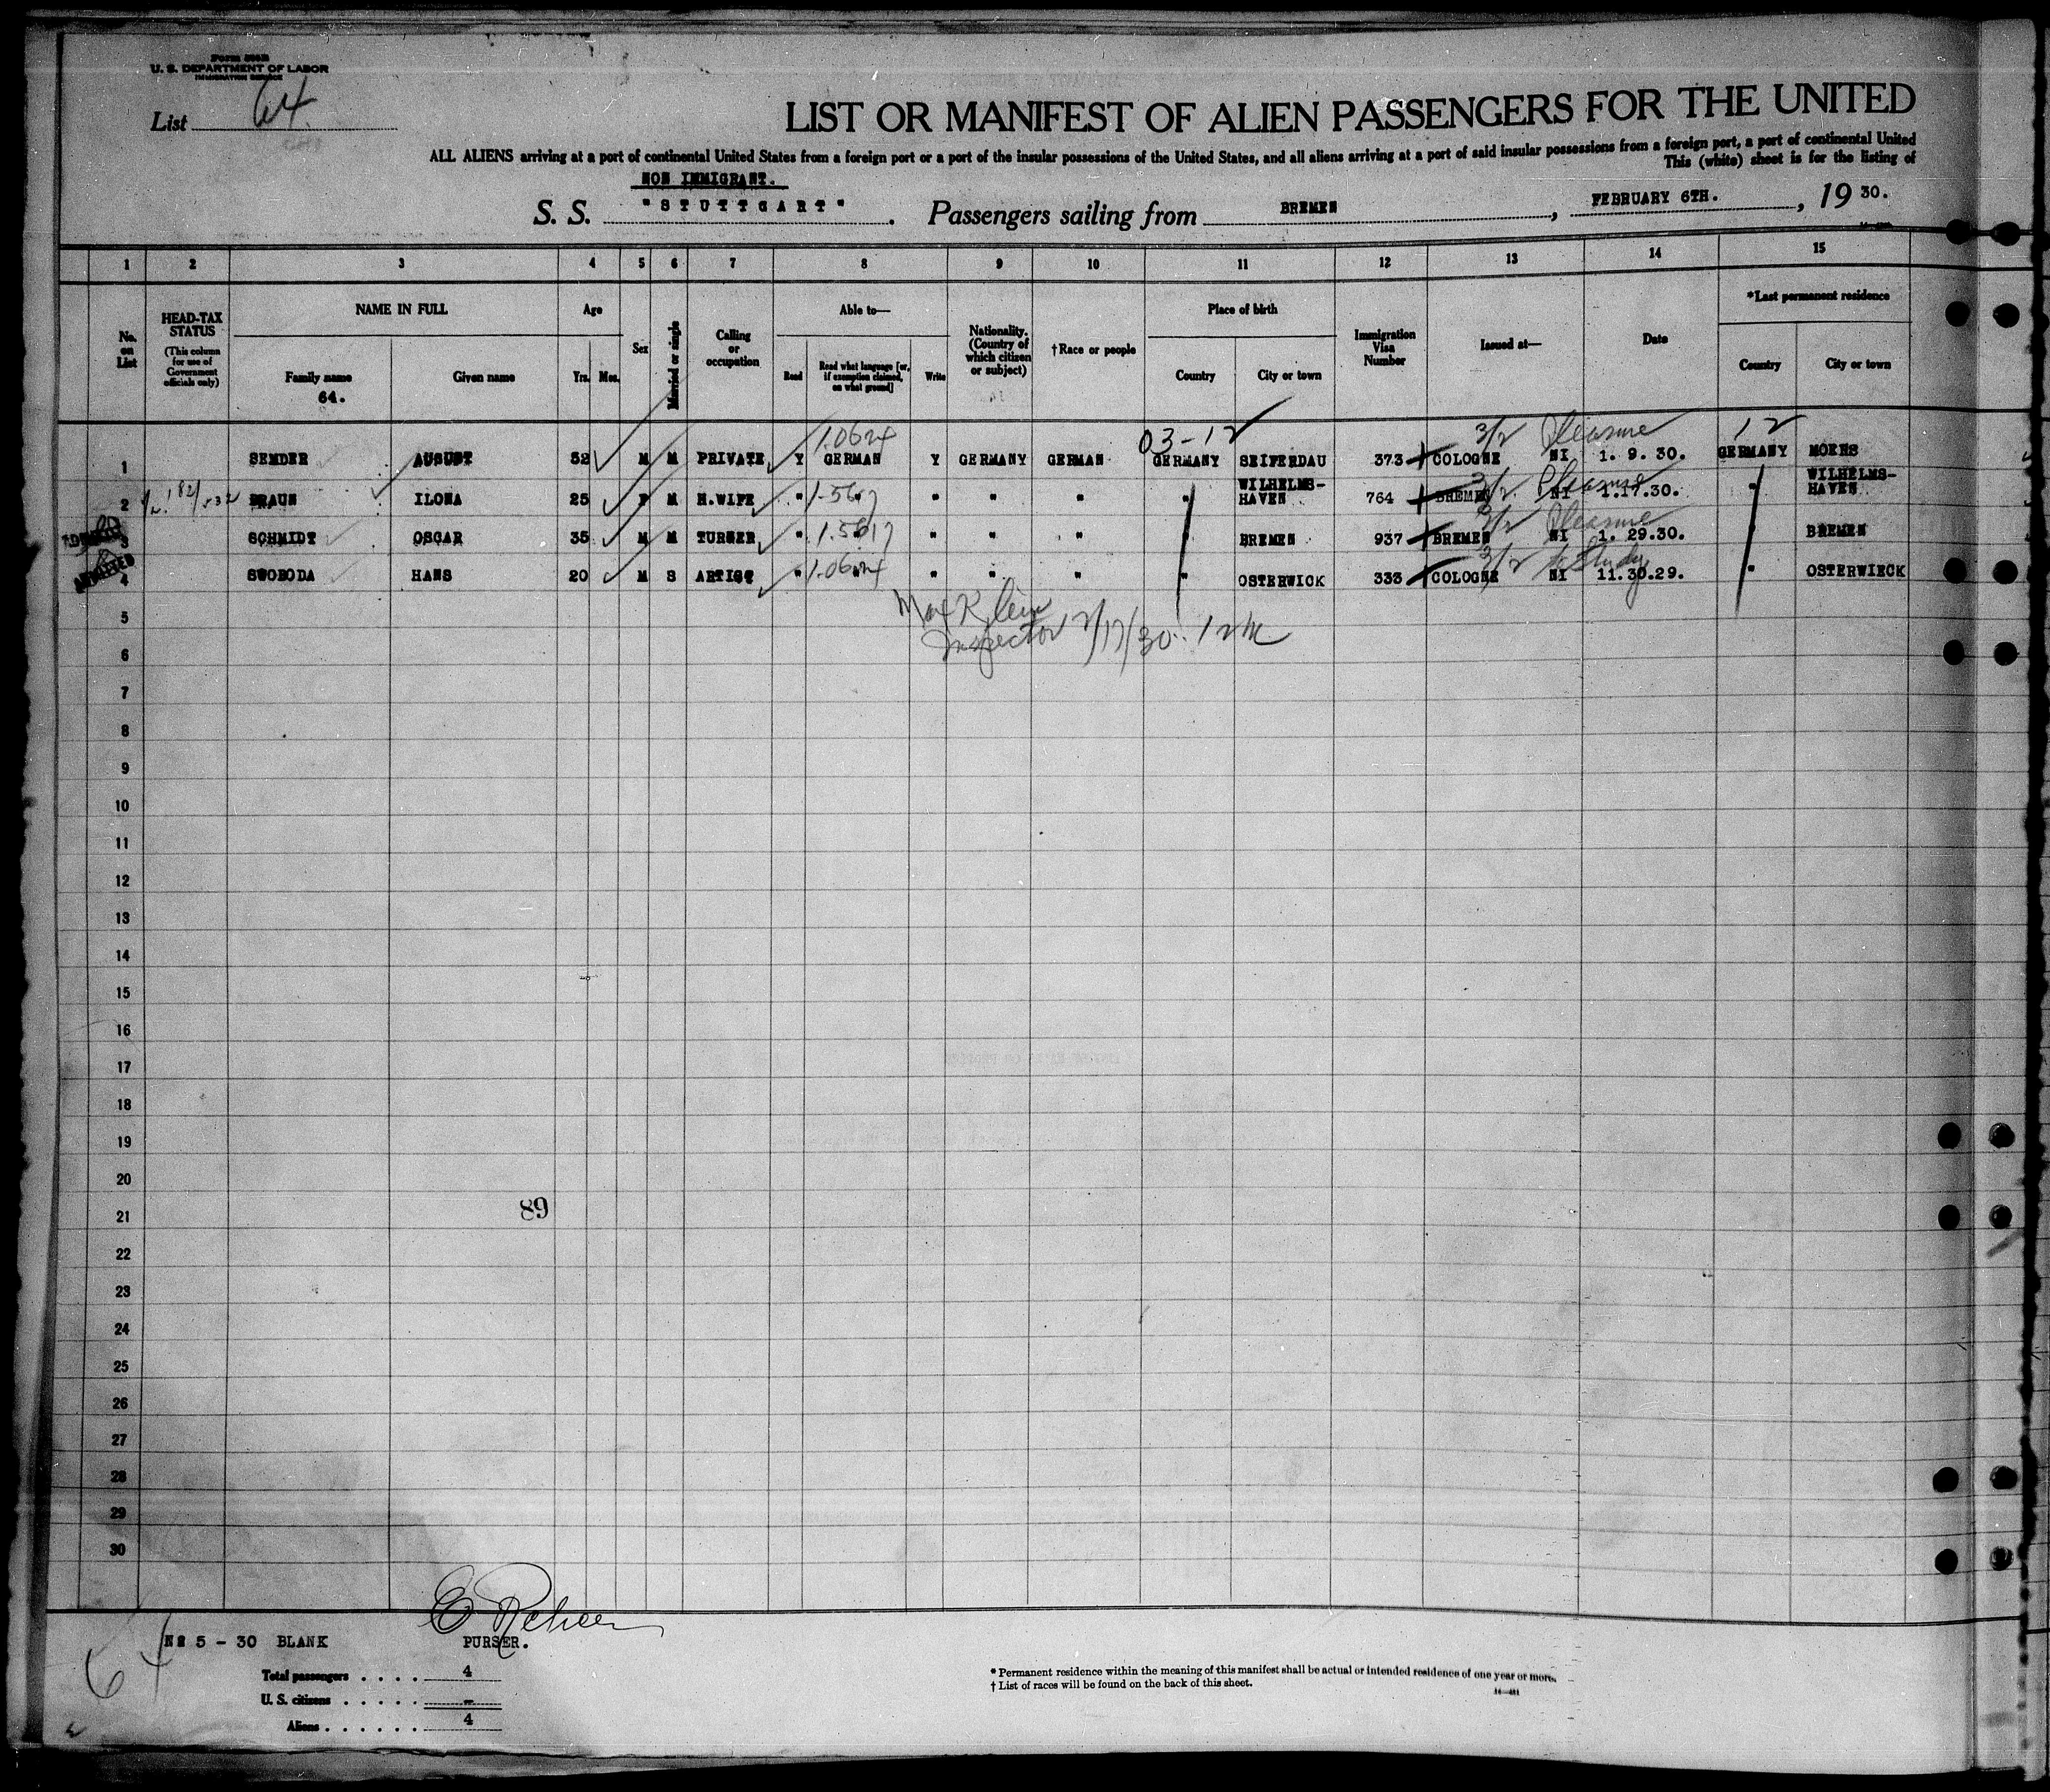 Form 500B
U. S. DEPARTMENT OF LABOR
IMMIGRATION SERVICE
List 64
LIST OR MANIFEST OF ALIEN PASSENGERS FOR THE UNITED
ALL ALIENS arriving at a port of continental United States from a foreign port or a port of the insular possessions of the United States, and all aliens arriving at a port of said insular possessions from a foreign port, a port of continental United
This (white) sheet is for the listing of
NON IMMIGRANT.
S. S. "STUTTGART". Passengers sailing from BREMEN, FEBRUARY 6TH., 1930.
1 2 3 4 5 6 7 8 9 10 11 12 13 14 15
No. on List
HEAD-TAX STATUS
(This column for use of Government officials only)
NAME IN FULL
Family name
64.
Given name
Age
Yrs. Mos.
Sex
Married or single
Calling or occupation
Able to—
Read
Read what language [or, if exemption claimed, on what ground]
Write
Nationality. (Country of which citizen or subject)
†Race or people
Place of birth
Country
City or town
Immigration Visa Number
Issued at—
Date
*Last permanent residence
Country
City or town
1.0624 03-12 3/2 Pleasure 12
1 SEMDER AUGUST 52 M M PRIVATE Y GERMAN Y GERMANY GERMAN GERMANY SEIFERDAU 373 COLOGNE NI 1. 9. 30. GERMANY MOERS
2 BRAUN ILONA 25 F M H.WIFE " 1-5617 " " " " WILHELMS-HAVEN 764 BREMEN 3/2 NI Pleasure 1.17.30. " WILHELMS-HAVEN
ADMITTED 3 SCHMIDT OSCAR 35 M M TURNER " 1.5617 " " " BREMEN 937 BREMEN 3/2 NI Pleasure 1. 29.30. BREMEN
ADMITTED 4 SWOBODA HANS 20 M S ARTIST " 1.0624 " " " " OSTERWICK 333 COLOGNE 3/2 NI to Study 11.30.29. " OSTERWIECK
Max Klein
Inspector 2/17/30
5
6
7
8
9
10
11
12
13
14
15
16
17
18
19
20
89
21
22
23
24
25
26
27
28
29
30
No 5 - 30 BLANK
PURSER.
64
Total passengers . . . . 4
U. S. citizens . . . . . -
Aliens . . . . . . 4
* Permanent residence within the meaning of this manifest shall be actual or intended residence of one year or more.
† List of races will be found on the back of this sheet.